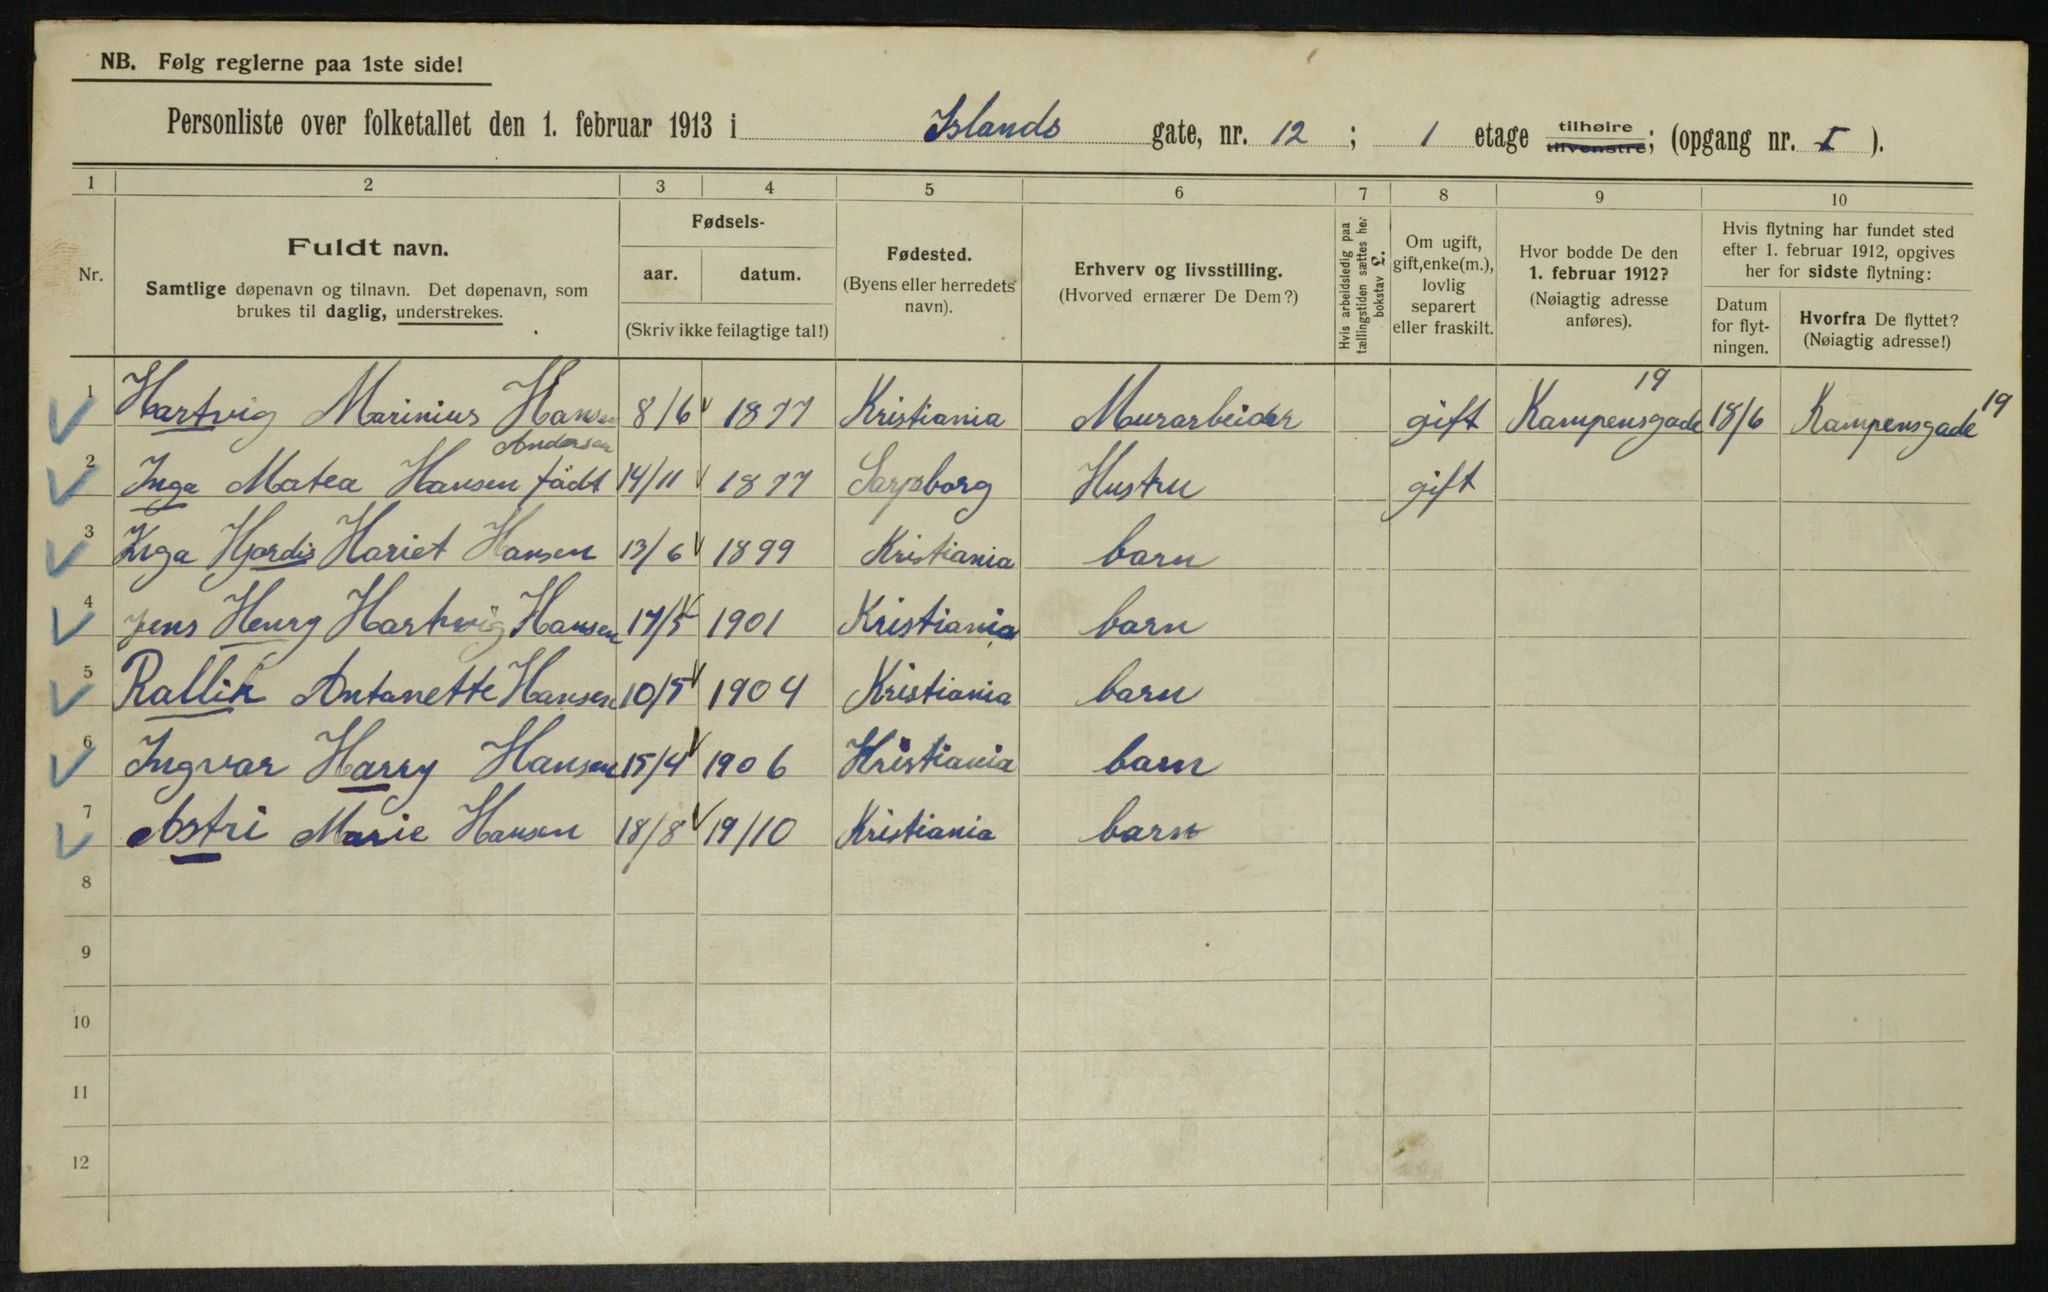 NB. Følg reglerne paa 1ste side!
Personliste over folketallet den 1. februar 1913 i Islands gate, nr. 12 ; 1 etage tilhøire tilvenstre; (opgang nr. I ).
1 2 3 4 5 6 7 8 9 10
Nr.
Fuldt navn.
Samtlige døpenavn og tilnavn. Det døpenavn, som
brukes til daglig, understrekes.
Fødsels-
aar. datum.
(Skriv ikke feilagtige tal!)
Fødested.
(Byens eller herredets
navn).
Erhverv og livsstilling.
(Hvorved ernærer De Dem?)
Hvis arbeidsledig paa
tællingstiden sættes her
bokstav L.
Om ugift,
gift, enke(m.),
lovlig
separert
eller fraskilt.
Hvor bodde De den
1. februar 1912?
(Nøiagtig adresse
anføres).
Hvis flytning har fundet sted
efter 1. februar 1912, opgives
her for sidste flytning:
Datum
for flyt-
ningen.
Hvorfra De flyttet?
(Nøiagtig adresse!)
1 Hartvig Marinius Hansen 8/6 1877 Kristiania Murarbeider gift Kampensgade 19 18/6 Kampensgade 19
Andersen
2 Inga Matea Hansen födt 14/11 1877 Sarpsborg Hustru gift
3 Inga Hjordis Hariet Hansen 13/6 1899 Kristiania barn
4 Jens Henry Hartwig Hansen 17/5 1901 Kristiania barn
5 Antonette Hansen 10/5 1904 Kristiania barn
6 Ingvar Harry Hansen 15/4 1906 Kristiania barn
7 Astri Marie Hansen 18/8 19/10 Kristiania barn
8
9
10
11
12